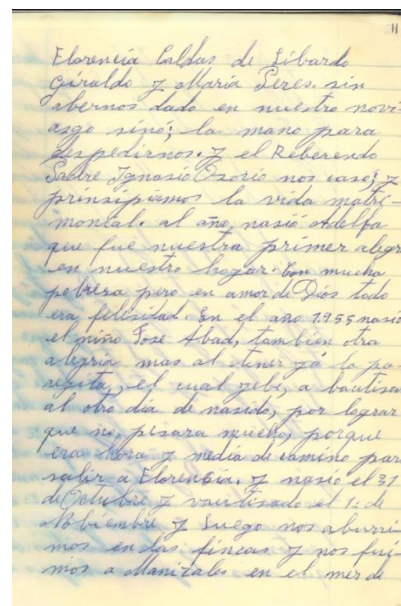 11
Florencia Caldas de Libardo
Giraldo y María Peres. sin
abernos dado en nuestro novi-
asgo sinó; la mano para
despedirnos. y el Reberendo
Padre Ignasio Osorio nos casó; y
prinsipiamos la vida matri-
monial. al año nasió Adelfa
que fue nuestra primer alegr
en nuestro hogar. Con mucha
pobresa pero en amor de Dios todo
era felisidad. En el año 1955 nasió
el niño José Abad, tambien otra
alegria mas al tener yá la pa-
rejita, el cual yebé, a bautisar
al otro dia de nasido, por lograr
que no, pesara mucho, porque
era hora y media de camino para
salir a Florencia. y nasio el 31
de Octubre y vautisado el 1: de
Nobiembre y Luego nos aburri-
mos en las fincas y nos fui-
mos a Manizales en el mes de